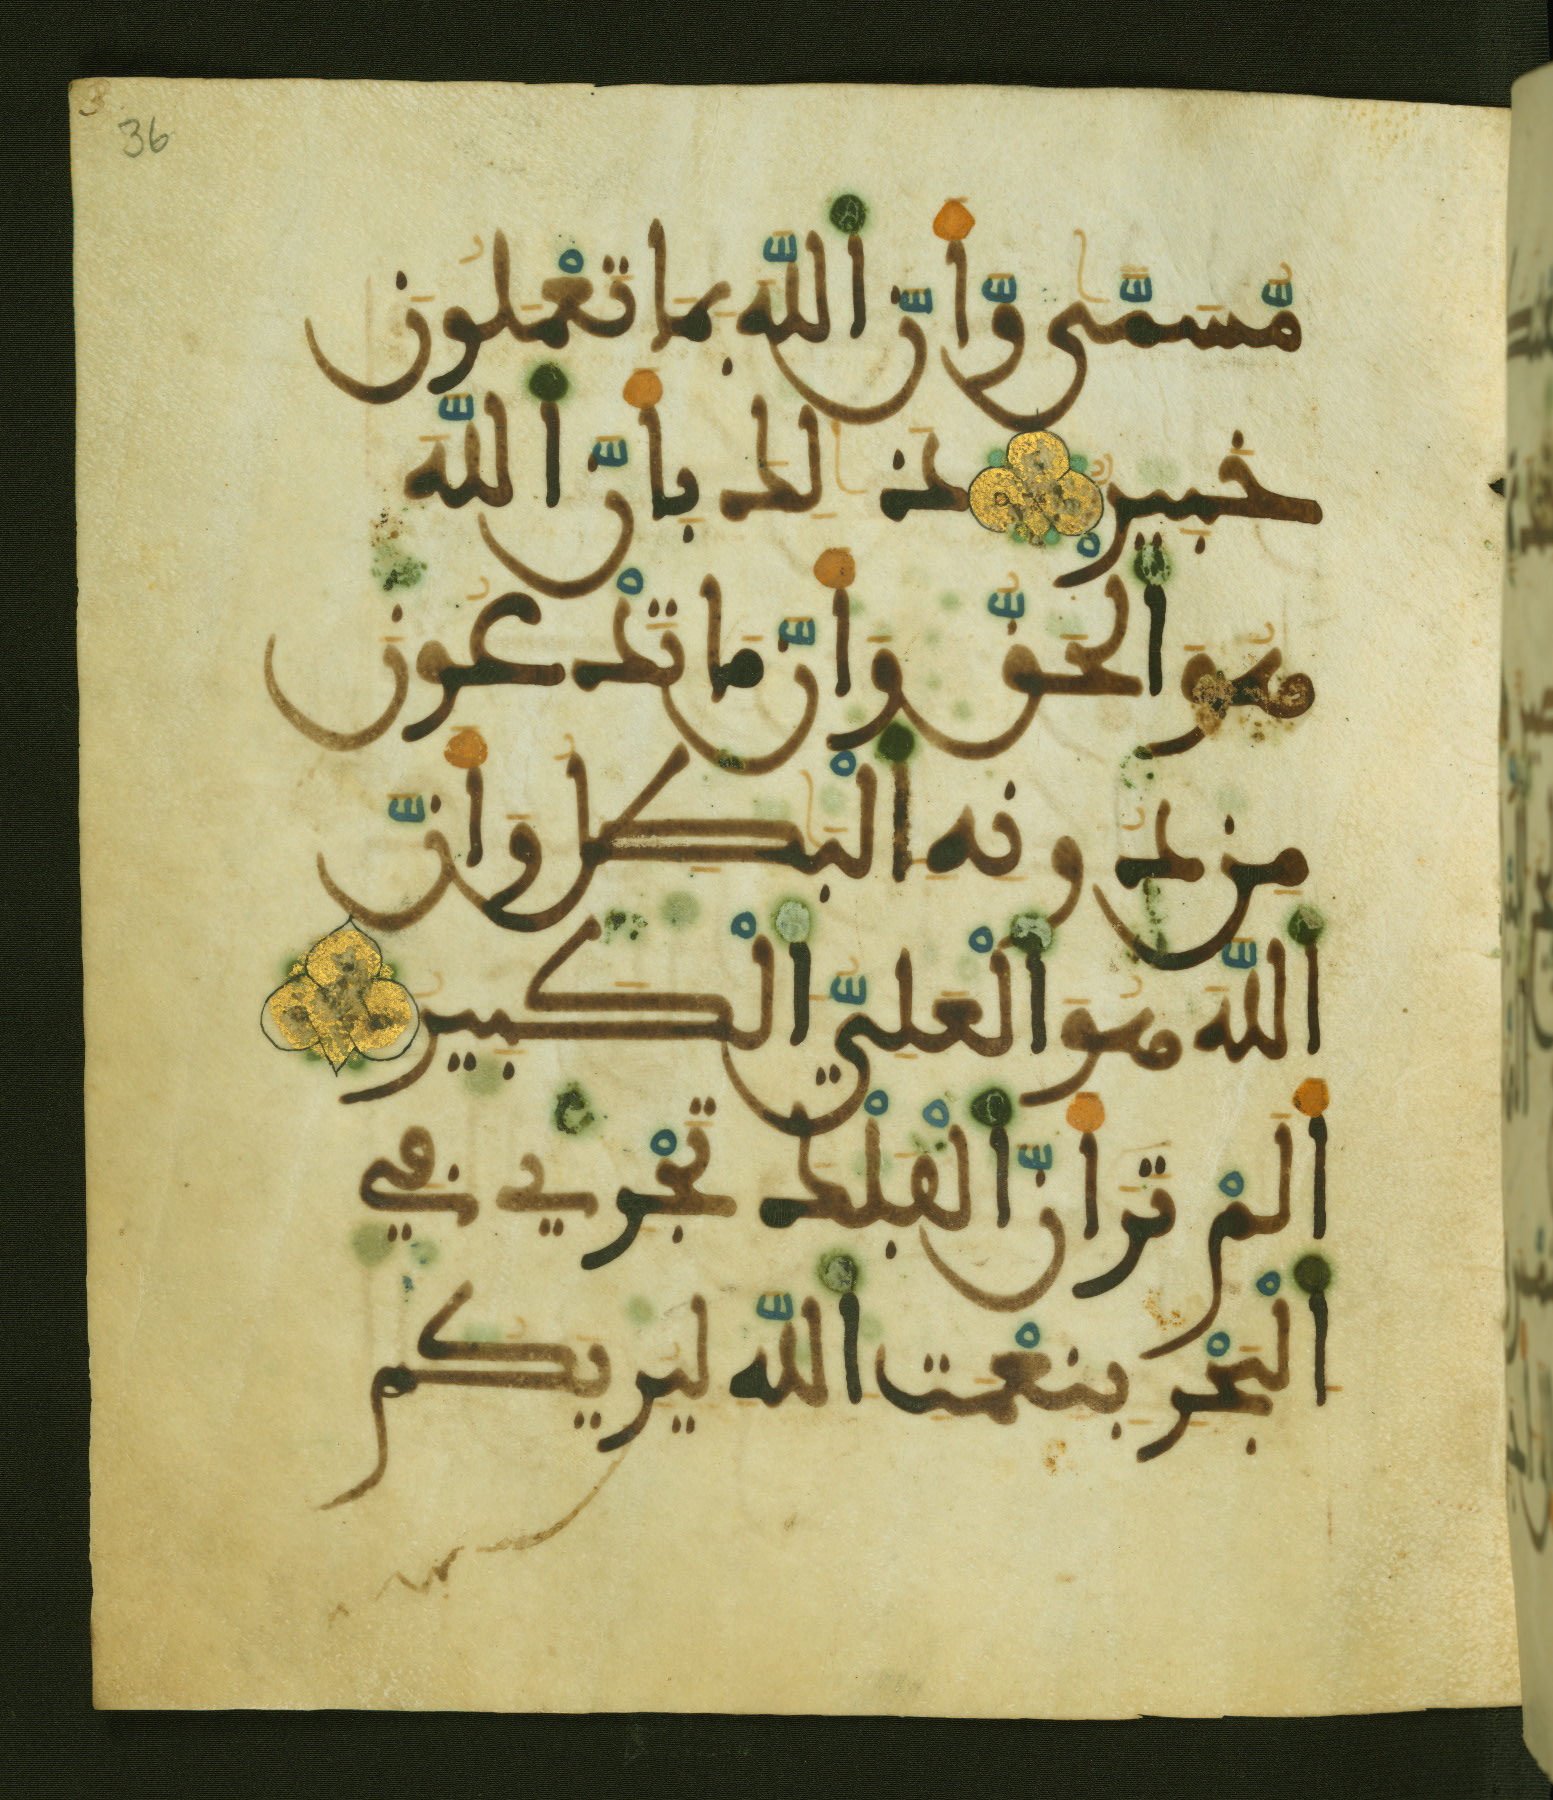 3
36
مُّسَمًّى وَأَنَّ اللَّهَ بِمَا تَعْمَلُونَ
خَبِيرٌ ذَٰلِكَ بِأَنَّ اللَّهَ
هُوَ الْحَقُّ وَأَنَّ مَا تَدْعُونَ
مِن دُونِهِ الْبَٰطِلُ وَأَنَّ
اللَّهَ هُوَ الْعَلِيُّ الْكَبِيرُ
أَلَمْ تَرَ أَنَّ الْفُلْكَ تَجْرِي فِي
الْبَحْرِ بِنِعْمَتِ اللَّهِ لِيُرِيَكُم